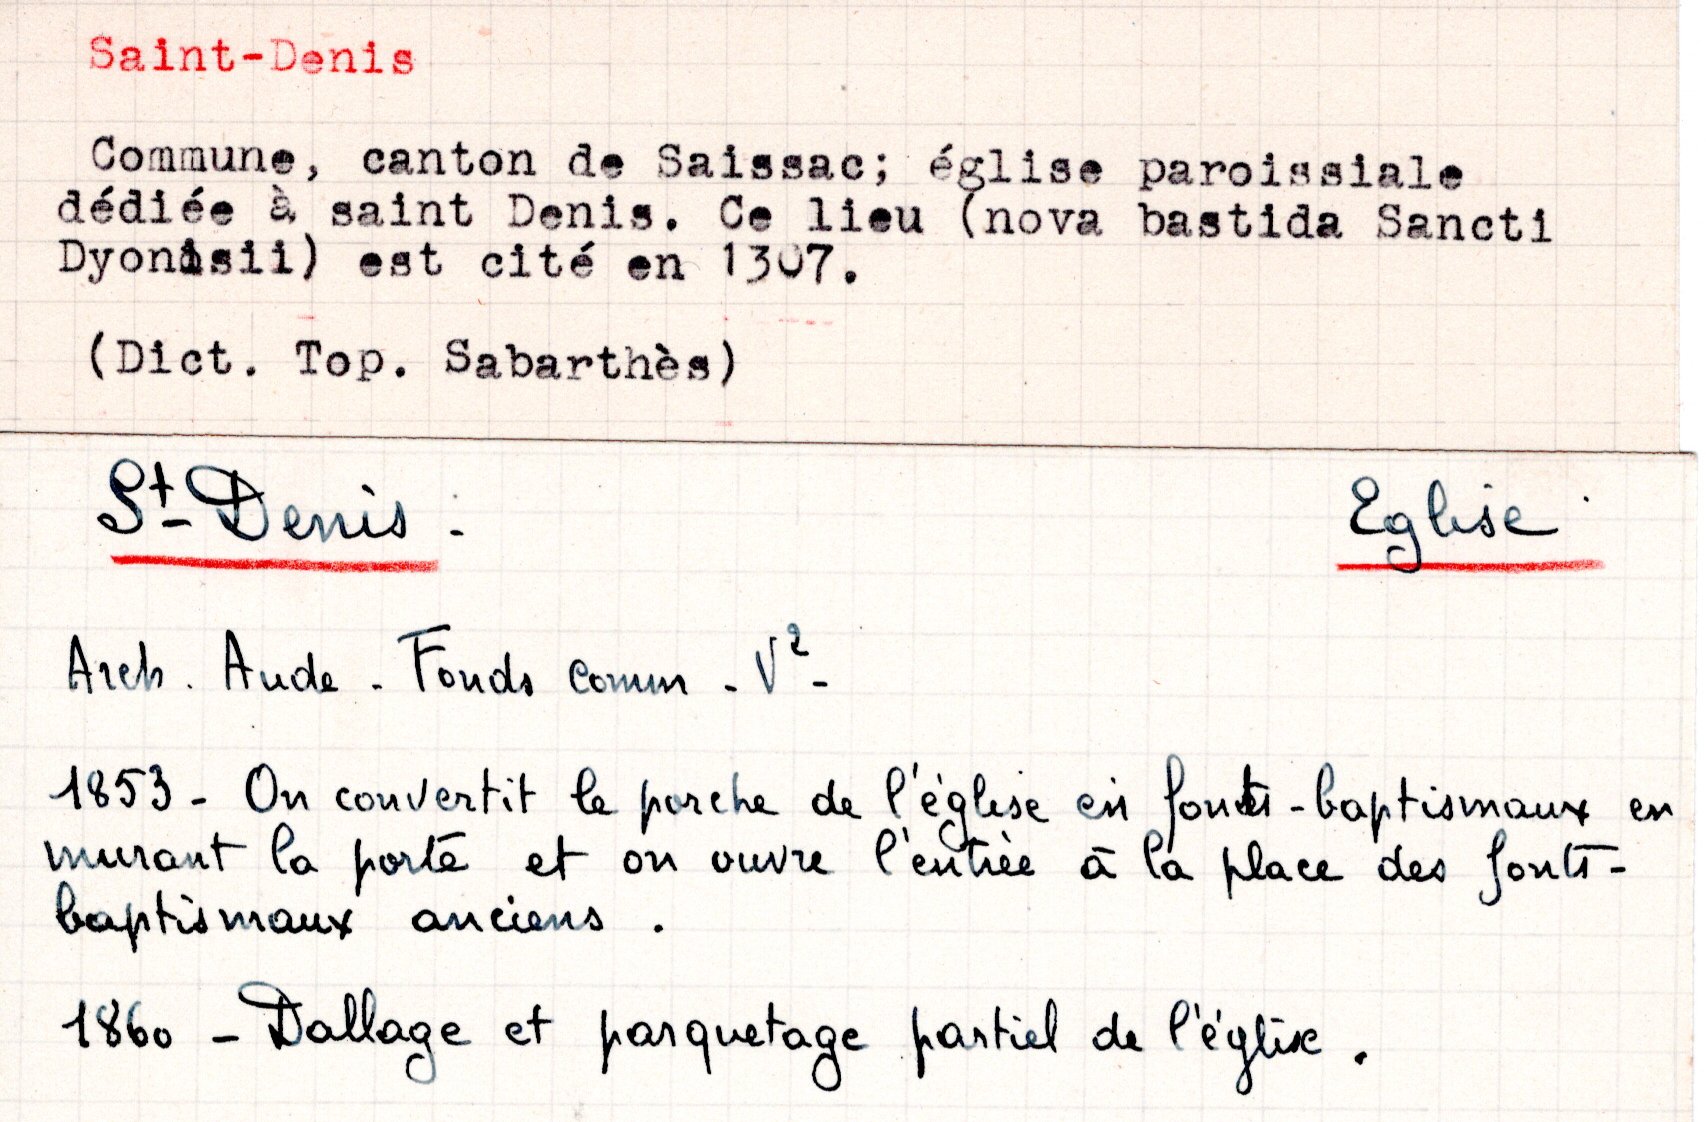 Saint-Denis
Commune, canton de Saissac; église paroissiale
dédiée à saint Denis. Ce lieu (nova bastida Sancti
Dyonisii) est cité en 1307.
(Dict. Top. Sabarthès)
St-Denis - Eglise
Arch. Aude - Fonds comm - V²-
1853 - On convertit le porche de l'église en fonts-baptismaux en
murant la porte et on ouvre l'entrée à la place des fonts-
baptismaux anciens.
1860 - Dallage et parquetage partiel de l'église.